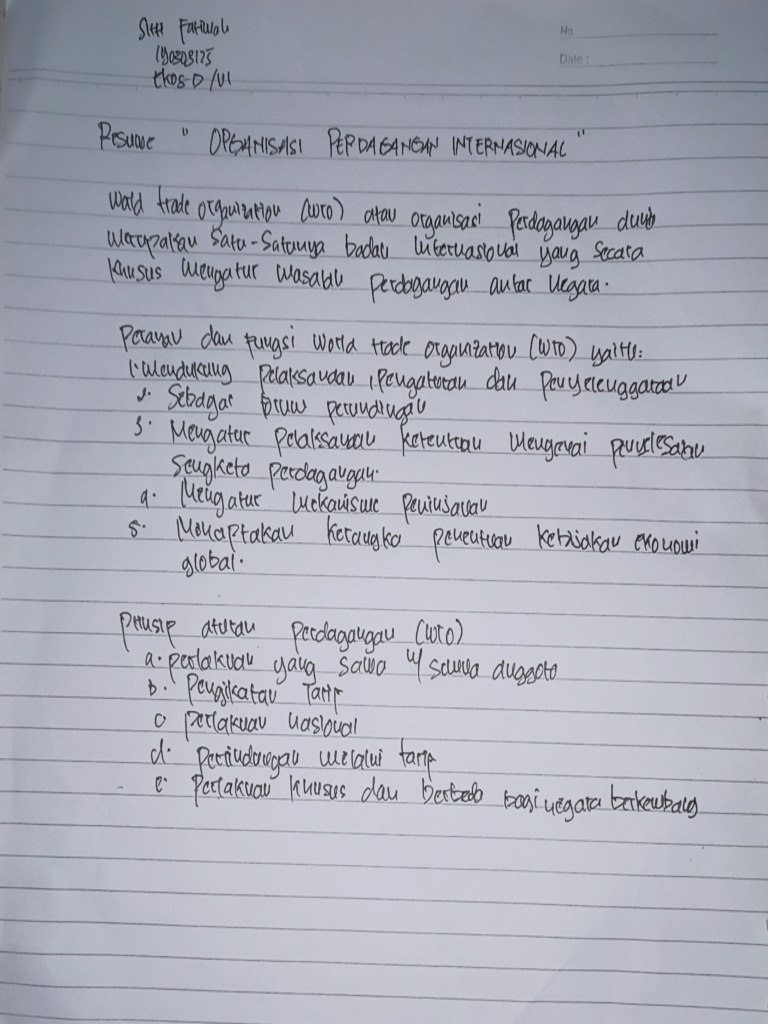 Siti Fatimah
No.
Date :
EKOS-D/VI
Resume " ORGANISASI PERDAGANGAN INTERNASIONAL "
World trade organization (WTO) atau organisasi perdagangan dunia
Merupakan Satu-Satunya badan Internasional yang secara
Khusus Mengatur Masalah perdagangan antar Negara.
Peranan dan fungsi World trade organization (WTO) yaitu:
1. Mendukung pelaksanaan, pengaturan dan penyelenggaraan
2. Sebagai perundingan
3. Mengatur pelaksanaan ketentuan Mengenai penyelesaian
Sengketa perdagangan.
4. Mengatur Mekanisme peninjauan
5. Menciptakan kerangka penentuan kebijakan ekonomi
global.
Prinsip aturan perdagangan (WTO)
a. perlakuan yang sama u/ semua anggota
b. Pengikatan Tarif
c perlakuan nasional
d. perlindungan melalui tarif
e. Perlakuan khusus dan berbeda bagi negara berkembang